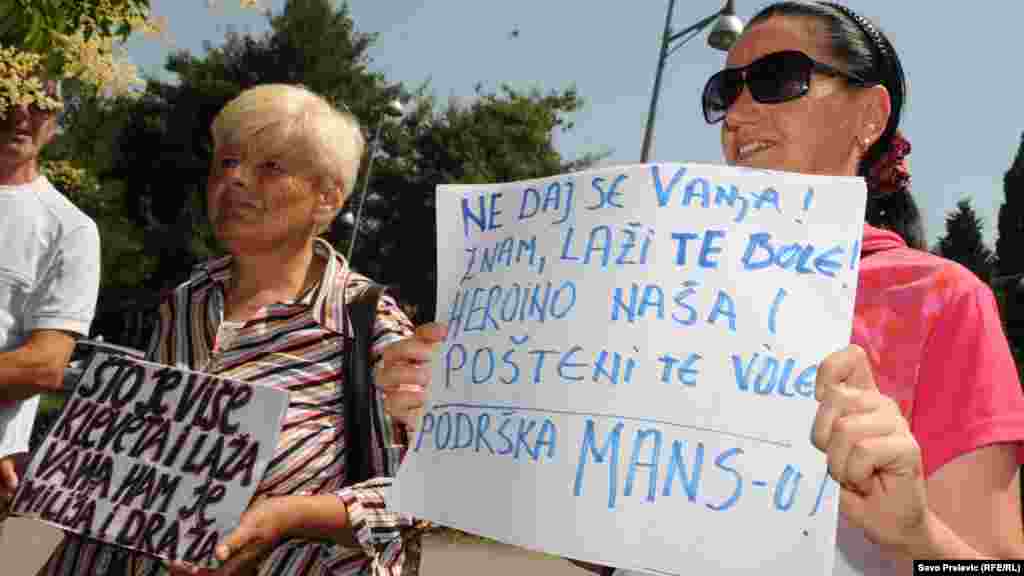 STO JE VIŠE
KLEVETA I LAŽA
VANJA HAM JE
MILIJA I DRAŽA
NE DAJ SE VANJA!
ZNAM, LAŽI TE BOLE!
HEROINO NAŠA!
POŠTENI TE VOLE
PODRŠKA MANS-U!
Savo Prelevic (RFE/RL)